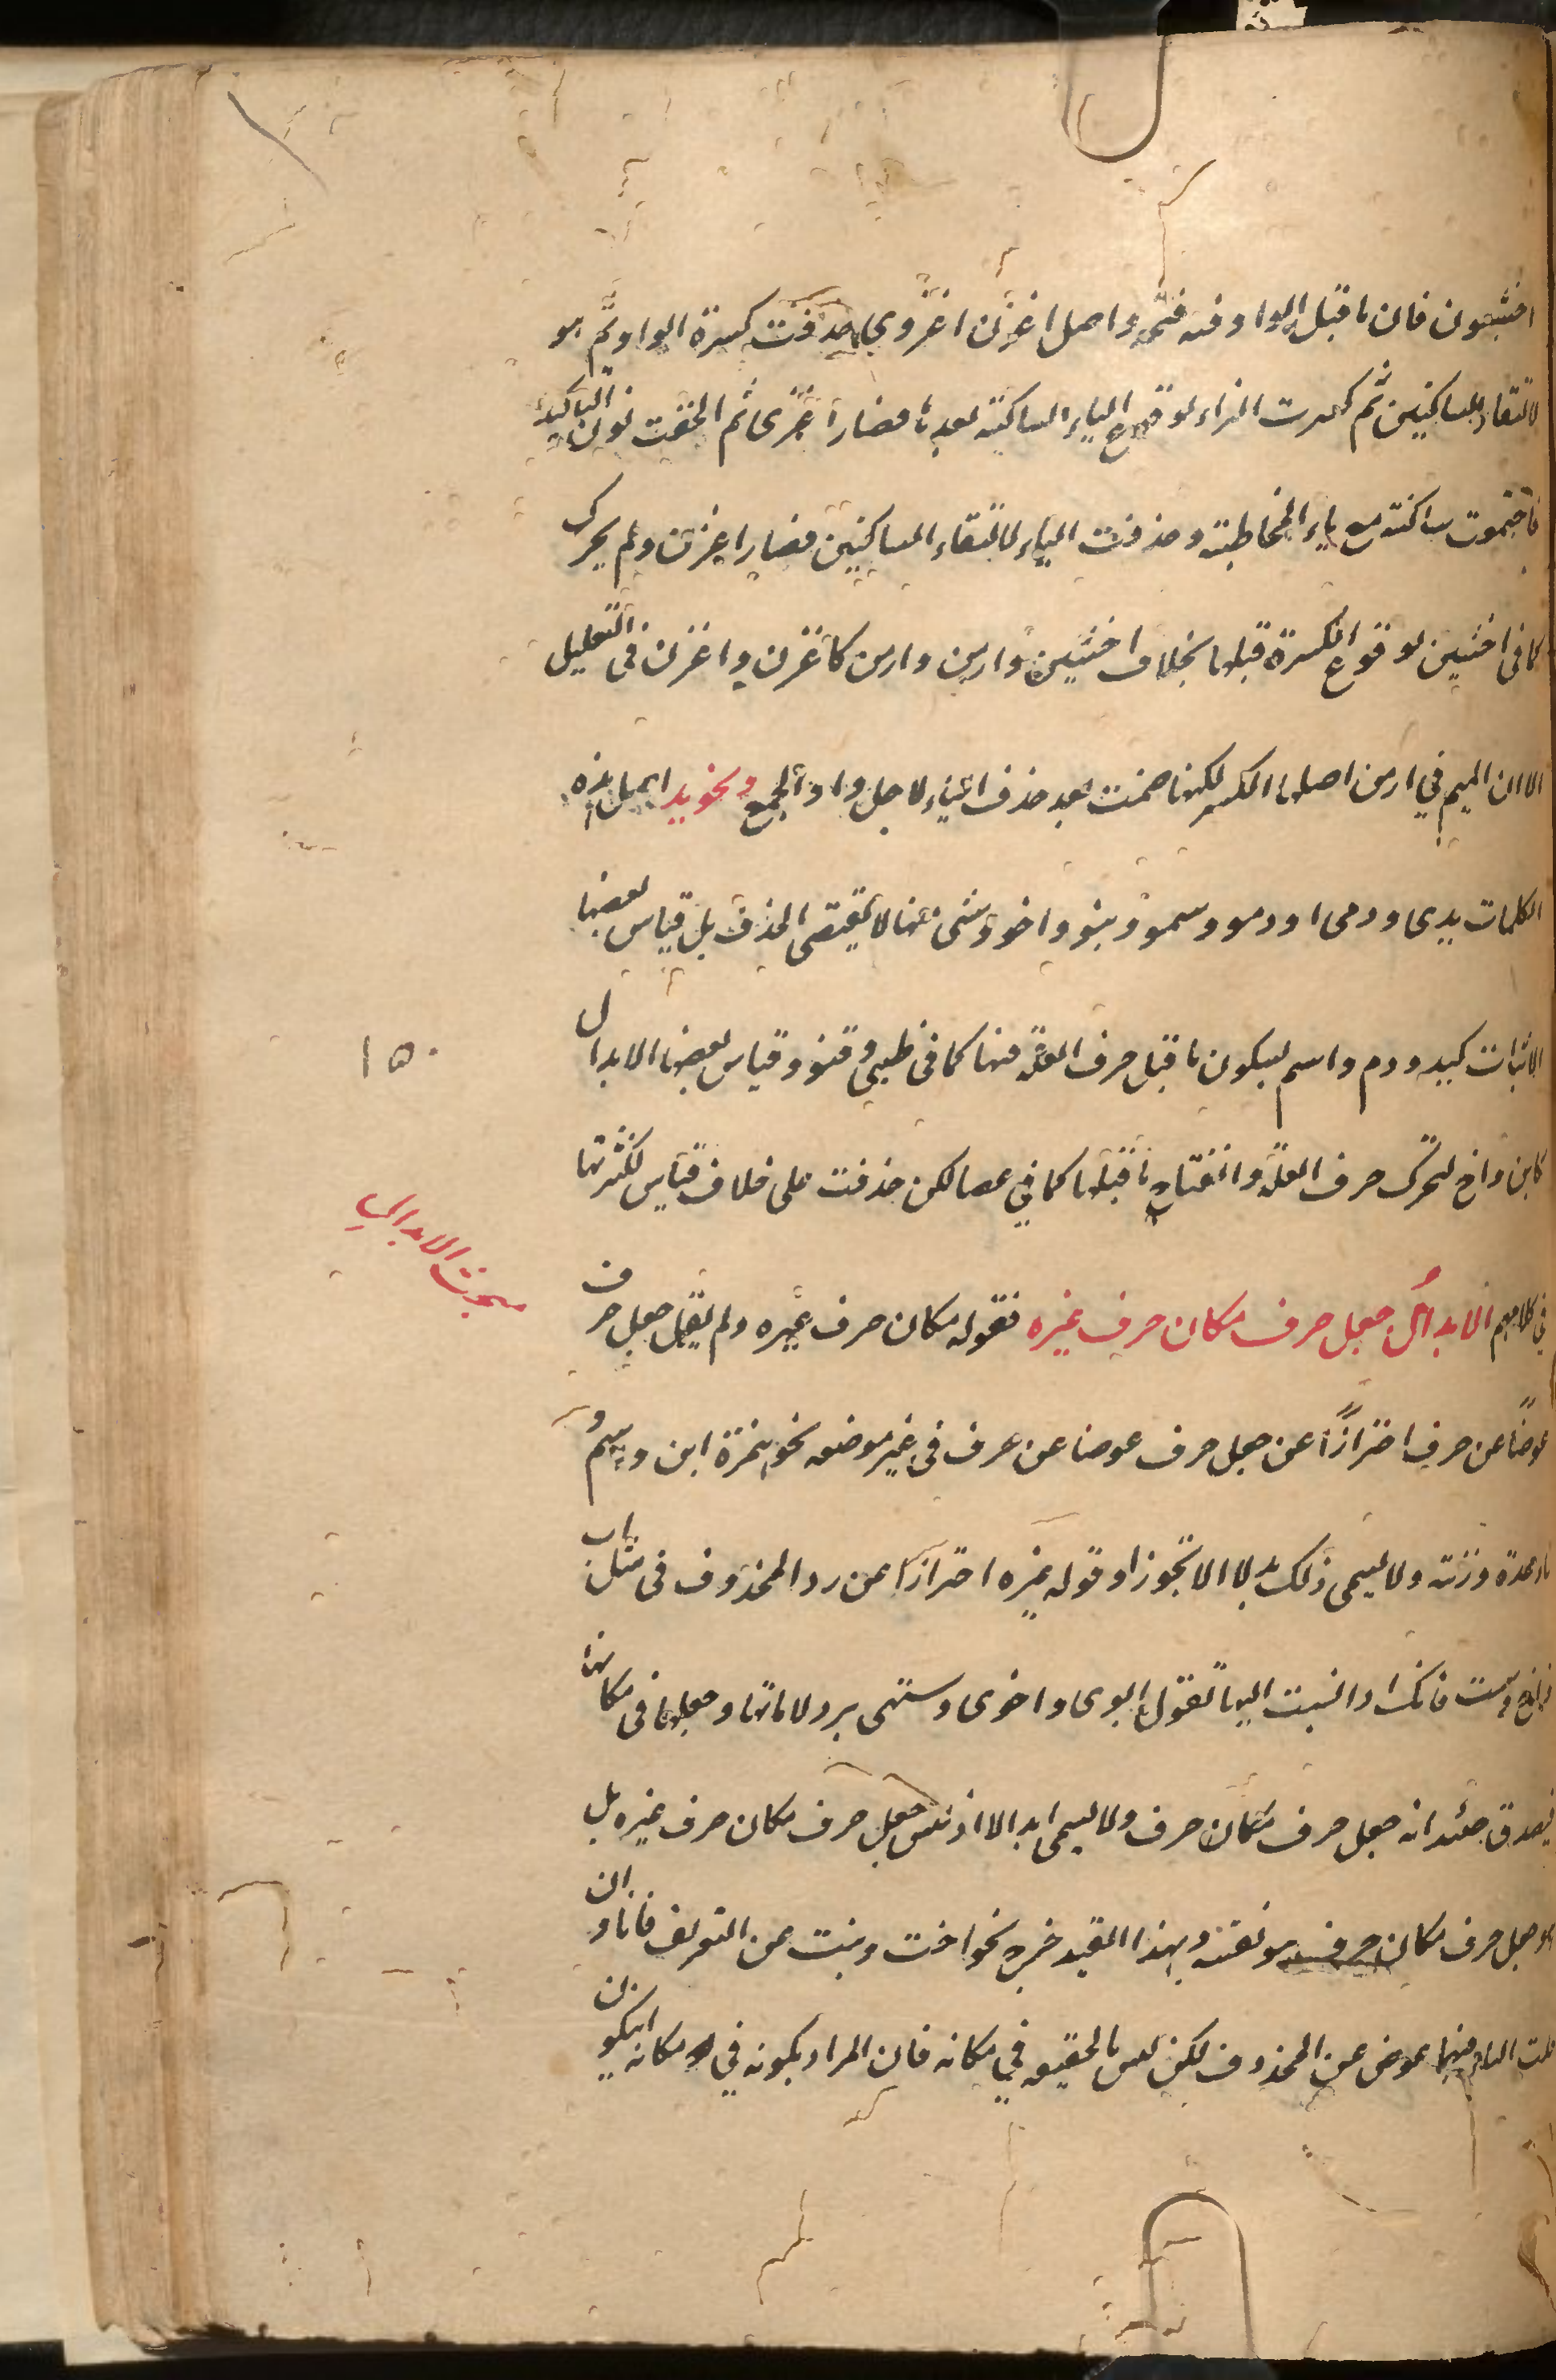 اخشون فان ما قبل الواو فيه فتحة واصل اغزن اغزوى حذفت كسرة الواو ثم هو
لالتقاء الساكنين ثم كسرت الزاء لوقوع الياء الساكنة بعدها فصار اغزى ثم الحقت نون التاكيد
فاجتمعت ساكنة مع ياء المخاطبة وحذفت الياء لالتقاء الساكنين فصار اغزن ولم يحرك
كما فى اخشين لوقوع الكسرة قبلها بخلاف اخشين وارمن وارمن كاغزن واغزن فى التعليل
الا ان الميم في ارمن اصلها الكسر لكنها ضمت بعد حذف الياء لاجل واو الجمع ونحو يد اصل هذه
الكلمات يدى ودمى او دمو وسمو وبنو واخو وشىء منها لا يقتضى الحذف بل قياس بعضها
الاثبات كيد ودم واسم لسكون ما قبل حرف العلة فيها كما فى ظبى وقنو وقياس بعضها الابدال
كابن واخ لتحرك حرف العلة وانفتاح ما قبلها كما في عصا لكن حذفت على خلاف قياس لكثرتها
١٥٠
مبحث الابدال
في كلامهم الابدال جعل حرف مكان حرف غيره فقوله مكان حرف غيره ولم يقل جعل حرف
عوضا عن حرف احترازا عن جعل حرف عوضا عن حرف فى غير موضعه نحو همزة ابن واسم و
تاء عدة وزنة ولا يسمى ذلك بدلا الا تجوزا وقوله غيره احترازا عن رد المحذوف فى مثل اب
واخ وست فانك اذا نسبت اليها تقول ابوى واخوى وستهى برد لاماتها وجعلها فى مكانها
فيصدق حينئذ انه جعل حرف مكان حرف ولا يسمى ابدالا اذ ليس جعل حرف مكان حرف غيره بل
هو جعل حرف مكان حرف هو نفسه وبهذا القيد خرج نحو اخت وبنت عن التعريف فانا وان
قلت التاء فيهما عوض عن المحذوف لكن ليس بالحقيقة في مكانه فان المراد بكونه في مكانه ان يكون